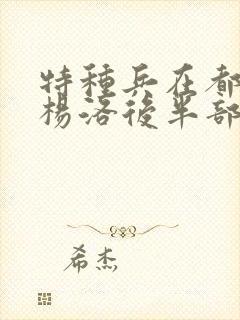 特種兵在都
楊洛後半部
希杰